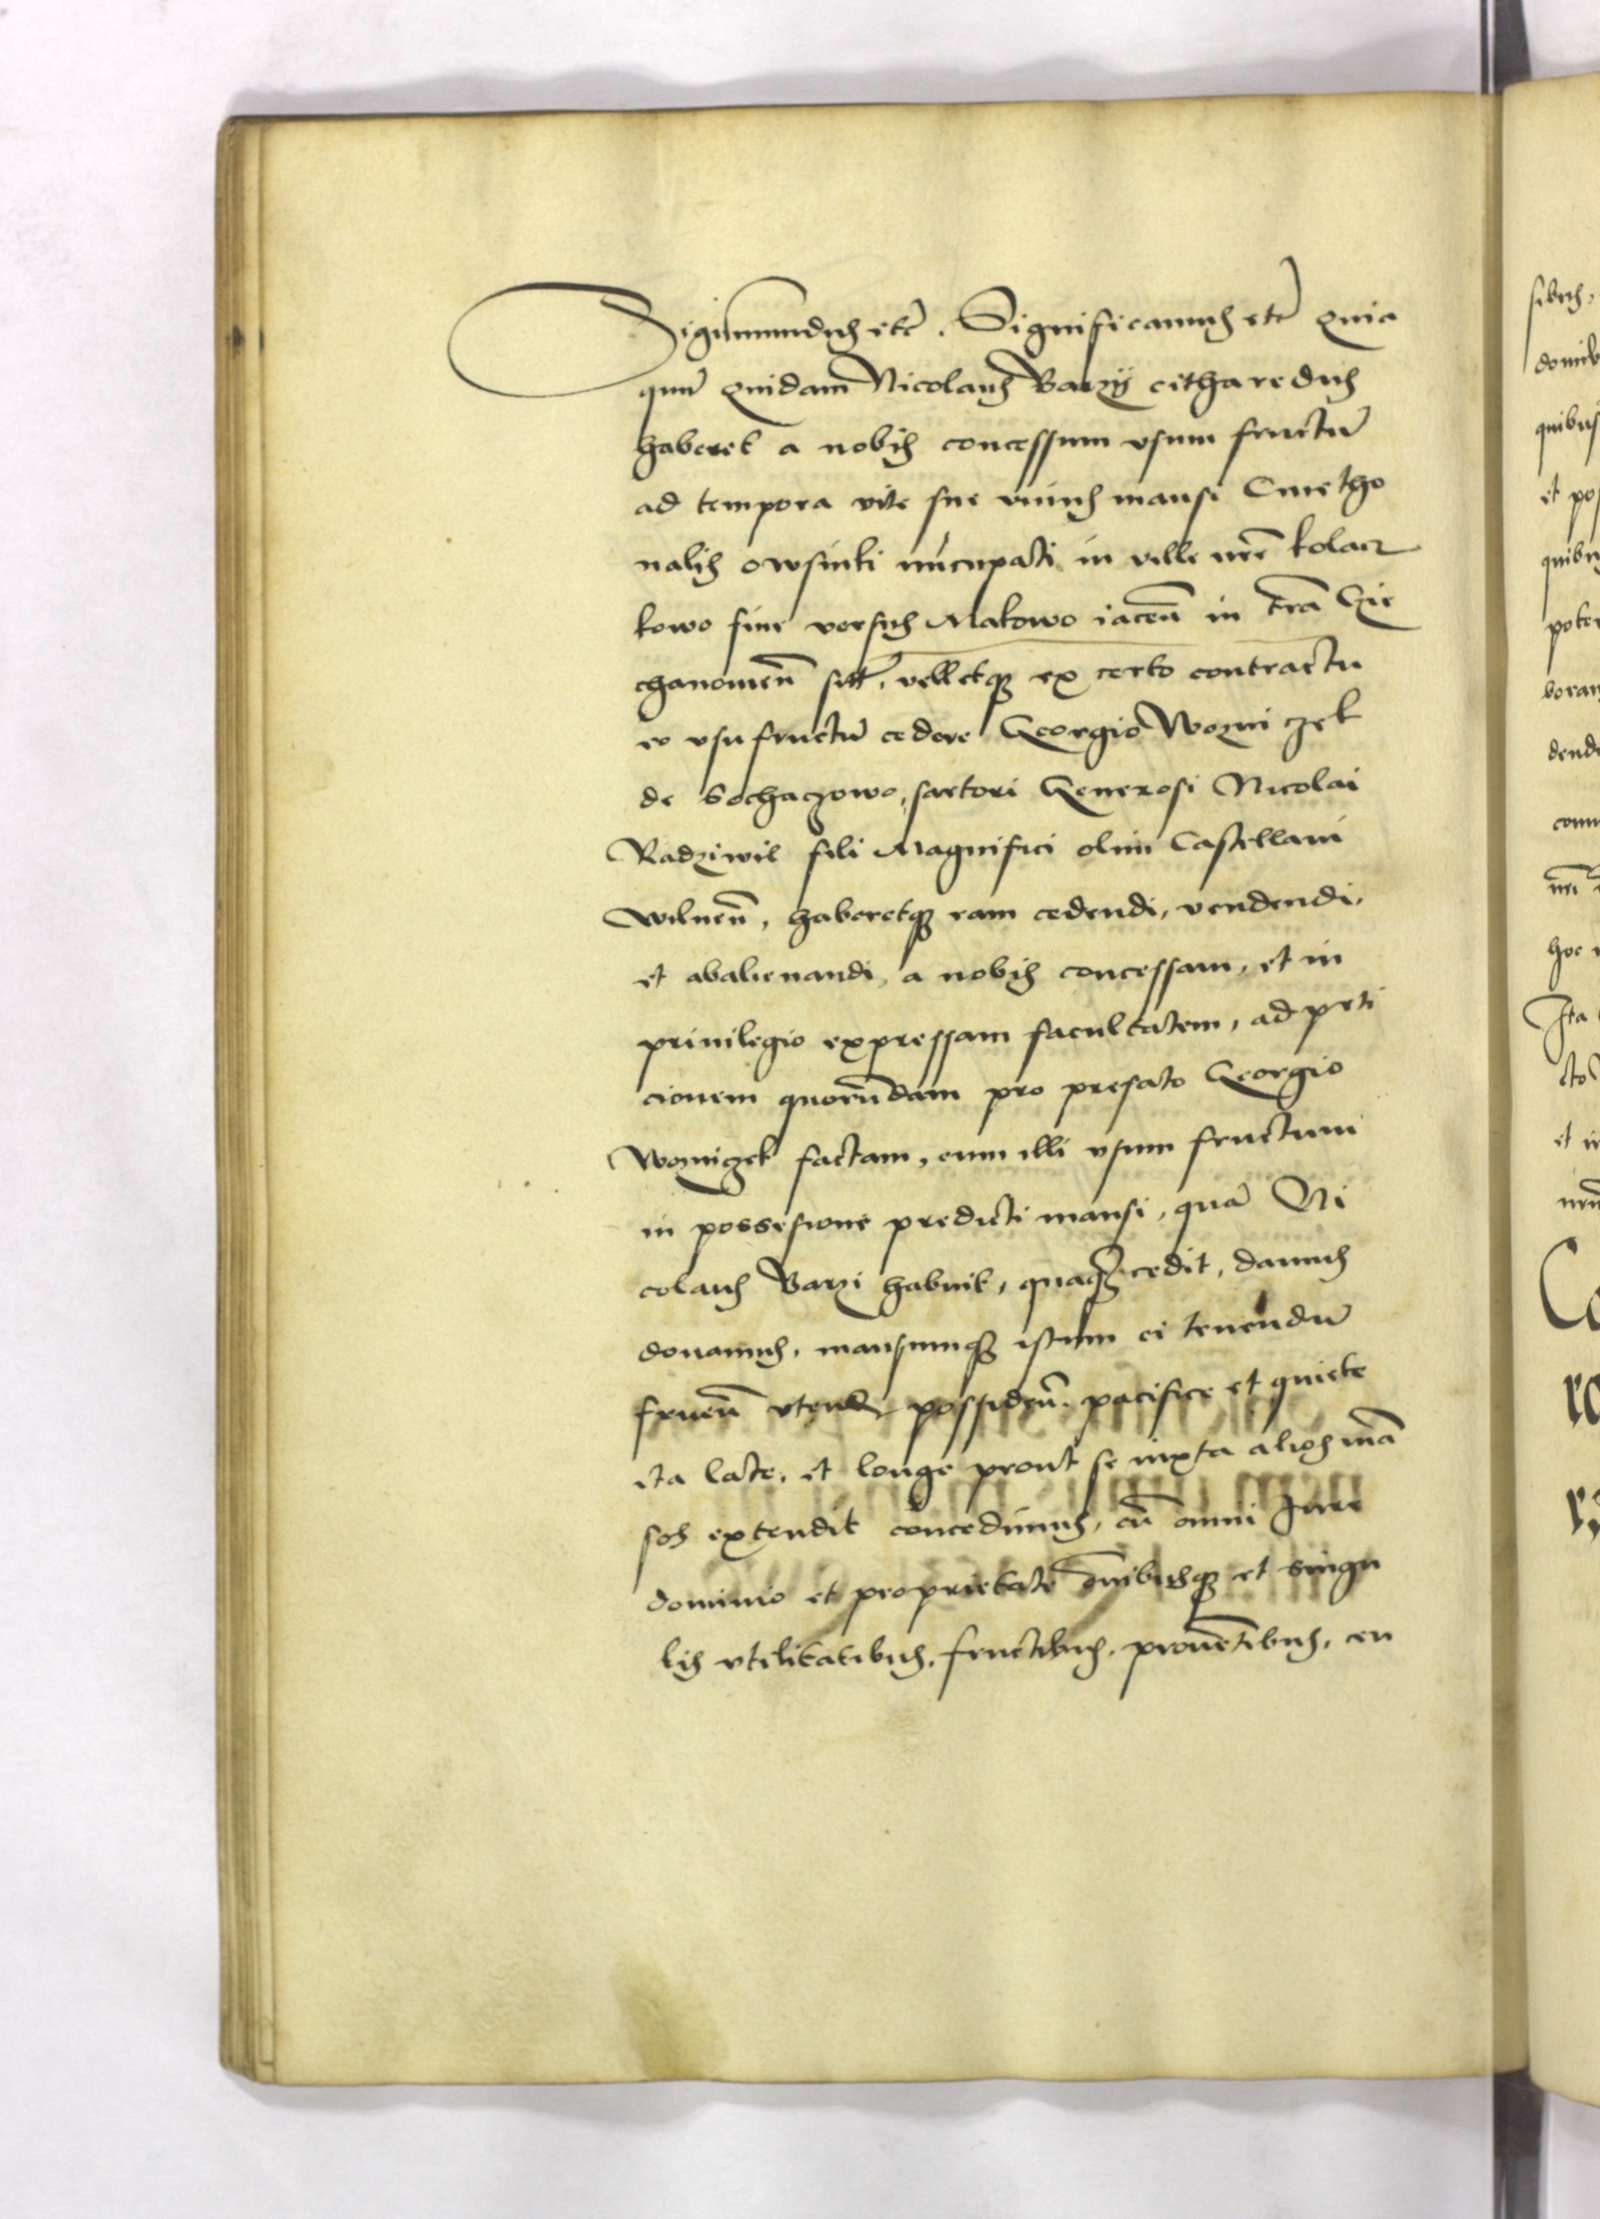 Sigismundus etc. Significamus etc quia
qum quidam Nicolaus Barzij citharedus
haberet a nobis concessum vsum fructu
ad tempora vite sue vnius mansi Cmetho
nalis owsinki nuncupati in ville nre kolacz
kowo siue versus Makowo iacen in tra Cie
chanouien sit, velletq ex certo contractu
eo vsu fructu cedere Georgio Wozniczek
de Sochaczowo, sartori Generosi Nicolai
Radziwil fili Magnifici olim Castellani
Wilnen, haberetq eam cedendi, vendendi,
et abalienandi, a nobis concessam, et in
priuilegio expressam facultatem, ad peti
cionem quorundam pro prefato Georgio
Wozniczek factam, eum illi vsum fructum
in possesione predicti mansi, qua Ni
colaus Barzi habuit, quaq cedit, damus
donamus, mansumq istum ei tenendu
fruen vtend possiden. pacifice et quiete
ita late, et longe prout se iuxta alios man
sos extendit concedimus, cu omni Jure
dominio et proprietate omibusq et singu
lis vtilitatibus, fructibus, prouetibus, cen